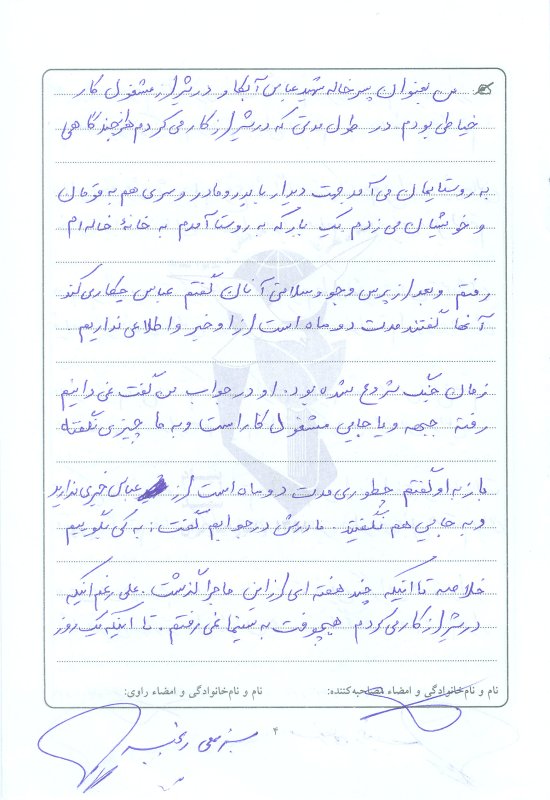 من بعنوان پسرخاله شهید عباس آبکار و در شیراز مشغول کار
خیاطی بودم در طول مدتی که در شیراز کار می کردم هرازچند گاهی
به روستایمان می آمد جهت دیدار با پدر و مادر و سری هم به قومان
و خویشان می زدم یک بار که به روستا آمدم به خانهٔ خاله ام
رفتم و بعد از پرس وجو وسلامتی آنان گفتم عباس چکار می کند
آنها گفتند مدت دو ماه است از او خبر و اطلاعی نداریم
زمان جنگ شروع شده بود. او در جواب من گفت نمی دانیم
رفته جبهه و یا جایی مشغول کار است و به ما چیزی نگفته
باز به او گفتم چطوری مدت دو ماه است از عباس خبری ندارید
و به جایی هم نگفتید. مادرش در جوابم گفت: به کی بگوییم
خلاصه تا اینکه چند هفته ای از این ماجرا گذشت. علی رغم اینکه
در شیراز کار می کردم هیچوقت به سینما نمی رفتم. تا اینکه یک روز
نام و نام‌خانوادگی و امضاء مصاحبه‌کننده: نام و نام‌خانوادگی و امضاء راوی:
۴